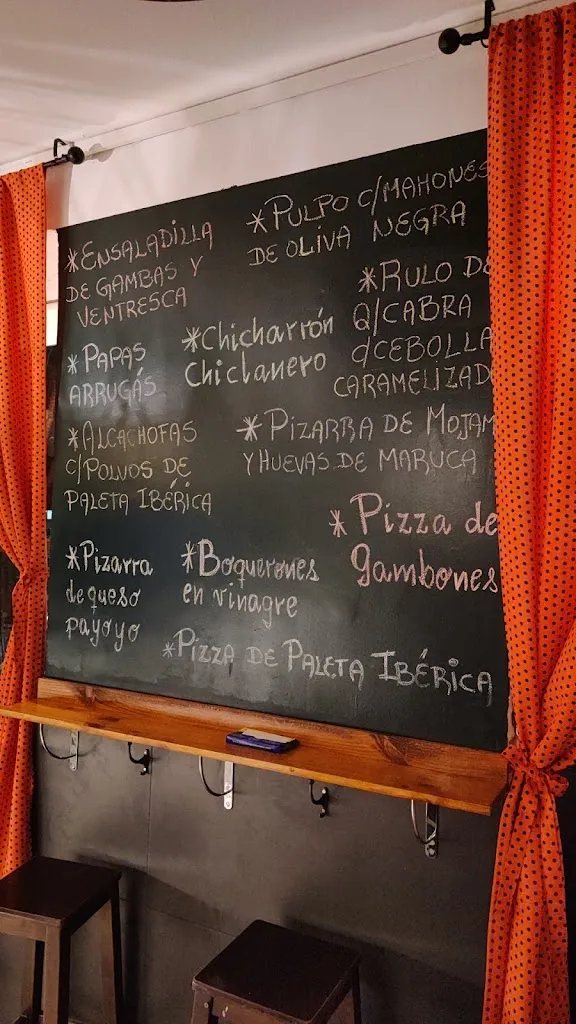 *ENSALADILLA
DE GAMBAS Y
VENTRESCA
*PULPO C/MAHONES
DE OLIVA NEGRA
*RULO DE
Q/CABRA
C/CEBOLLA
CARAMELIZAD
*PAPAS
ARRUGÁS
*Chicharrón
Chiclanero
*ALCACHOFAS
C/POLVOS DE
PALETA IBÉRICA
*PIZARRA DE MOJAM
Y HUEVAS DE MARUCA
*Pizza de
gambones
*Pizarra
de queso
payoyo
*Boquerones
en vinagre
*PIZZA DE PALETA IBÉRICA